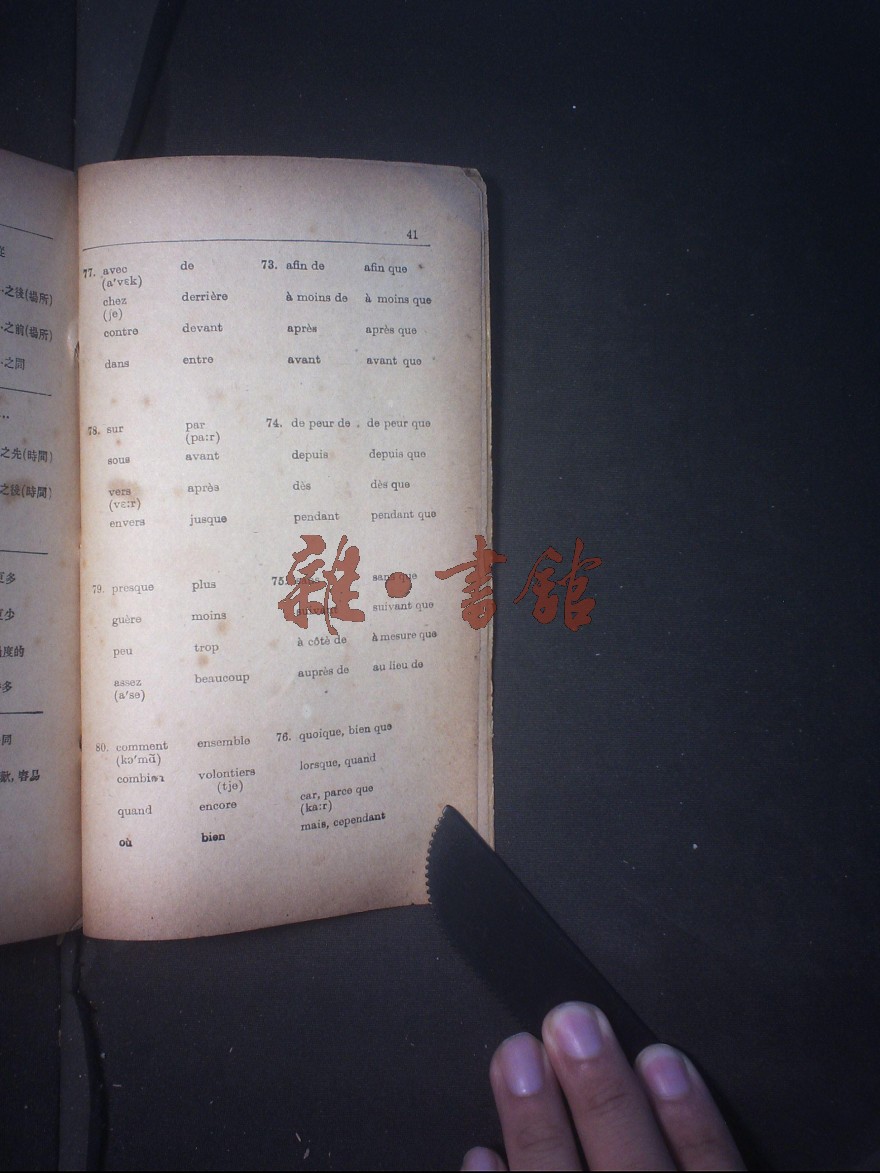 …之後(場所)
…之前(場所)
…之間
…
之先(時間)
之後(時間)
更多
更少
過度的
許多
同
歉, 容易
41
77. avec de 73. afin de afin que
(a′vɛk)
chez derrière à moins de à moins que
(je)
contre devant après après que
dans entre avant avant que
78. sur par 74. de peur de de peur que
(pa:r)
sous avant depuis depuis que
vers après dès dès que
(vɛ:r)
envers jusque pendant pendant que
79. presque plus 75. sans sans que
guère moins suivant suivant que
peu trop à côté de à mesure que
assez beaucoup auprès de au lieu de
(a′se)
80. comment ensemble 76. quoique, bien que
(kɔ′mɑ̃)
combien volontiers lorsque, quand
(tje)
quand encore car, parce que
(ka:r)
où bien mais, cependant
雜·書館